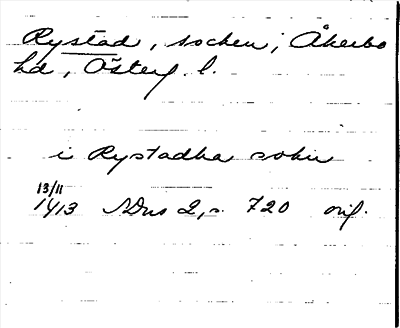 Rystad, socken, Åkerbo
hd, Österg. l.
i Rystadha sokn
13/11
1413 SDns 2, n. 720 orig.